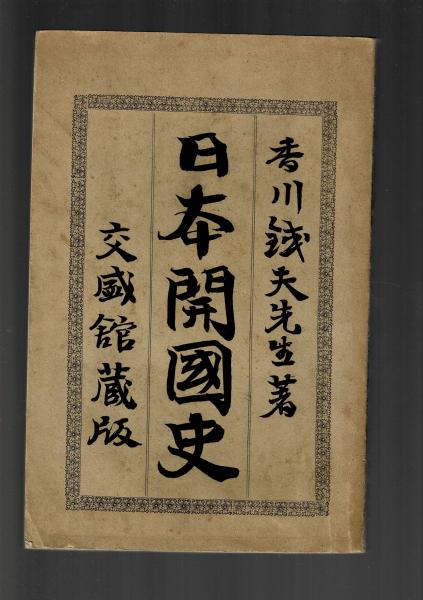 香川銭夫先生著
日本開國史
交盛館蔵版